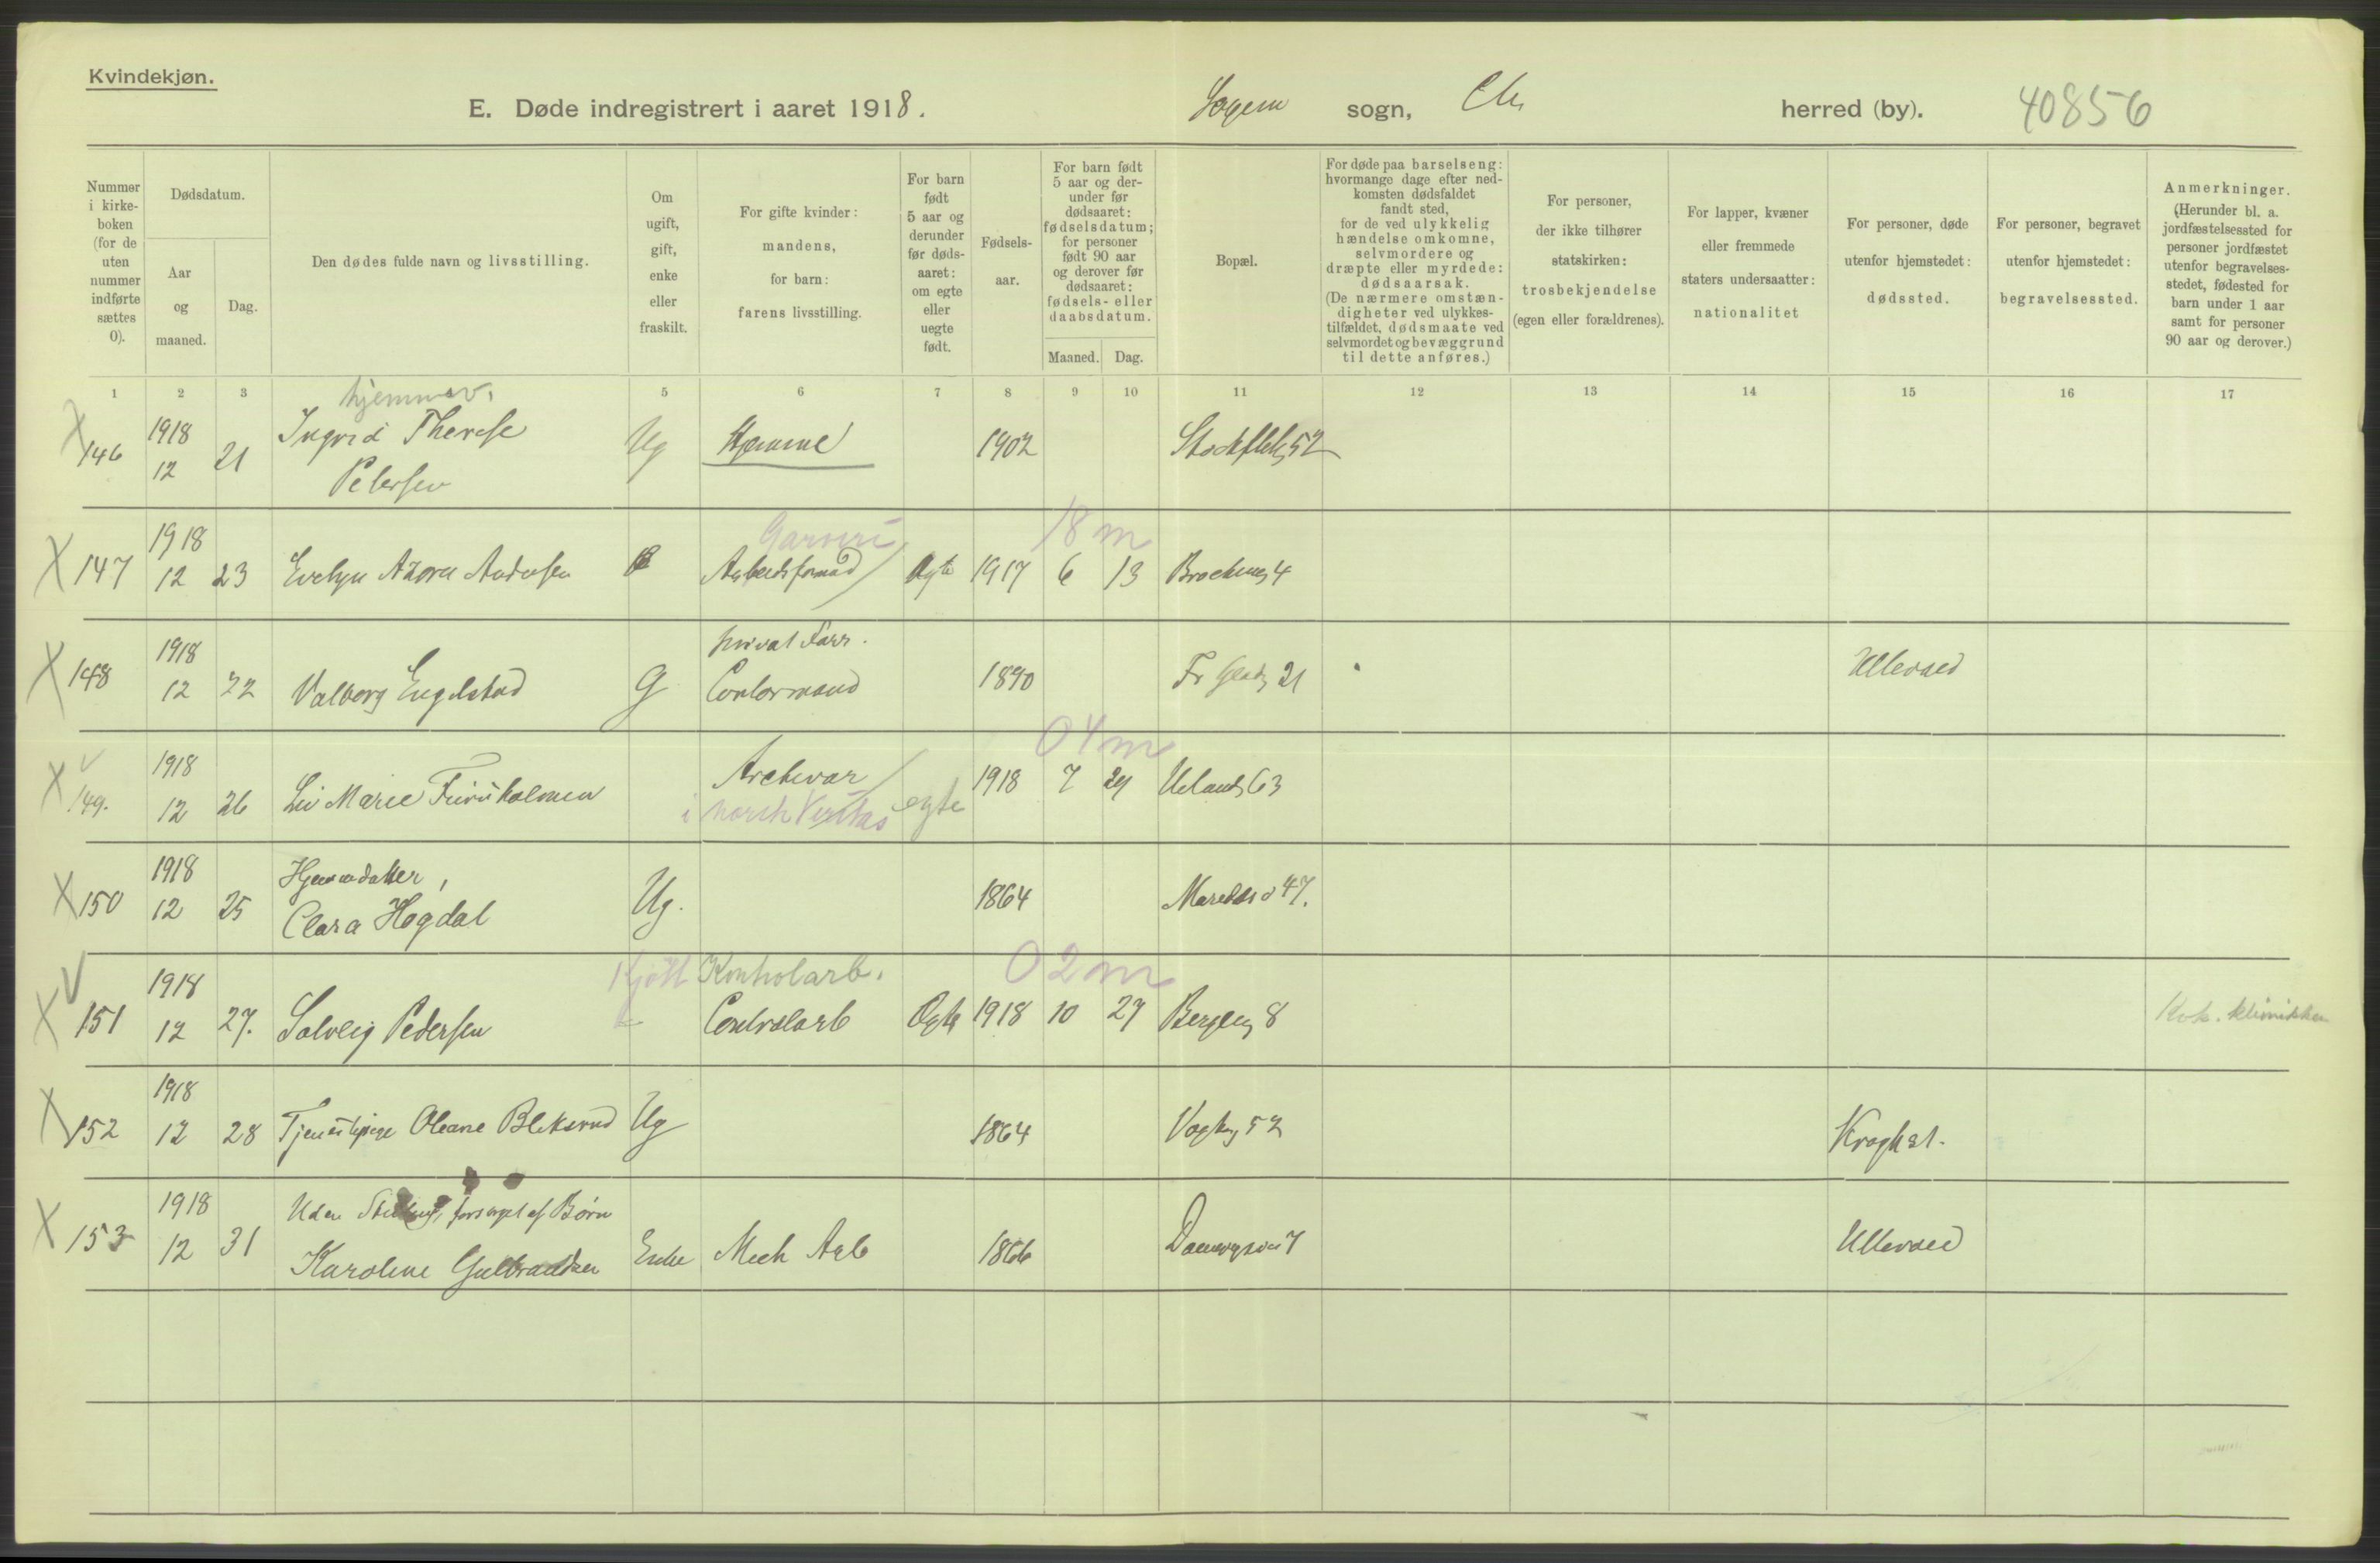 Kvindekjøn.
E. Døde indregistrert i aaret 1918. Sagene sogn, Chr herred (by). 40856
Nummer i kirkeboken (for de uten nummer indførte sættes 0).
Dødsdatum.
Aar og maaned.
Dag.
Den dødes fulde navn og livsstilling.
Om ugift, gift, enke eller fraskilt.
For gifte kvinder: mandens, for barn: farens livsstilling.
For barn født 5 aar og derunder før dødsaaret: om egte eller uegte født.
Fødselsaar.
For barn født 5 aar og derunder før dødsaaret: fødselsdatum; for personer født 90 aar og derover før dødsaaret: fødsels- eller daabsdatum.
Maaned. Dag.
Bopæl.
For døde paa barselseng: hvormange dage efter nedkomsten dødsfaldet fandt sted, for de ved ulykkelig hændelse omkomne, selvmordere og dræpte eller myrdede: dødsaarsak. (De nærmere omstændigheter ved ulykkestilfældet, dødsmaate ved selvmordet og bevæggrund til dette anføres.)
For personer, der ikke tilhører statskirken: trosbekjendelse (egen eller forældrenes).
For lapper, kvæner eller fremmede staters undersaatter: nationalitet
For personer, døde utenfor hjemstedet: dødssted.
For personer, begravet utenfor hjemstedet: begravelsessted.
Anmerkninger. (Herunder bl. a. jordfæstelsessted for personer jordfæstet utenfor begravelsesstedet, fødested for barn under 1 aar samt for personer 90 aar og derover.)
1 2 3 5 6 7 8 9 10 11 12 13 14 15 16 17
hjemmev.
X 146 1918 12 21 Ingrid Therese Petersen Ug Hjemme 1902 Stockfletsg 52
Garveri 18 m
X 147 1918 12 23 Evelyn Azora Andersen Arbeidsformand Ægte 1917 6 13 Brochmsg 4
privat Forr.
X 148 1918 12 22 Valborg Engelstad G Contormand 1890 Fr Gladsg 21 Ullevaal
04 m
X 149. 1918 12 26 Liv Marie Furuholmen Arkivar i norsk Veritas egte 1918 7 29 Uelandsg 63
X 150 1918 12 25 Hjemmedatter, Clara Høgdal Ug. 1864 Maridalsv 47.
Kjøtt Kontrolarb. 02 m
X 151 1918 12 27. Solveig Pedersen Controlarb Ægte 1918 10 27 Bergsg 8 klinikken
X 152 1918 12 28 Tjenestepige Oleane Bleksrud Ug 1864 Vogtsg 52 Kroghst.
X 153 1918 12 31 Uden Stilling, forsørget af Børn Karoline Gulbrandsen Enke Mek Arb 1866 Ullevaal